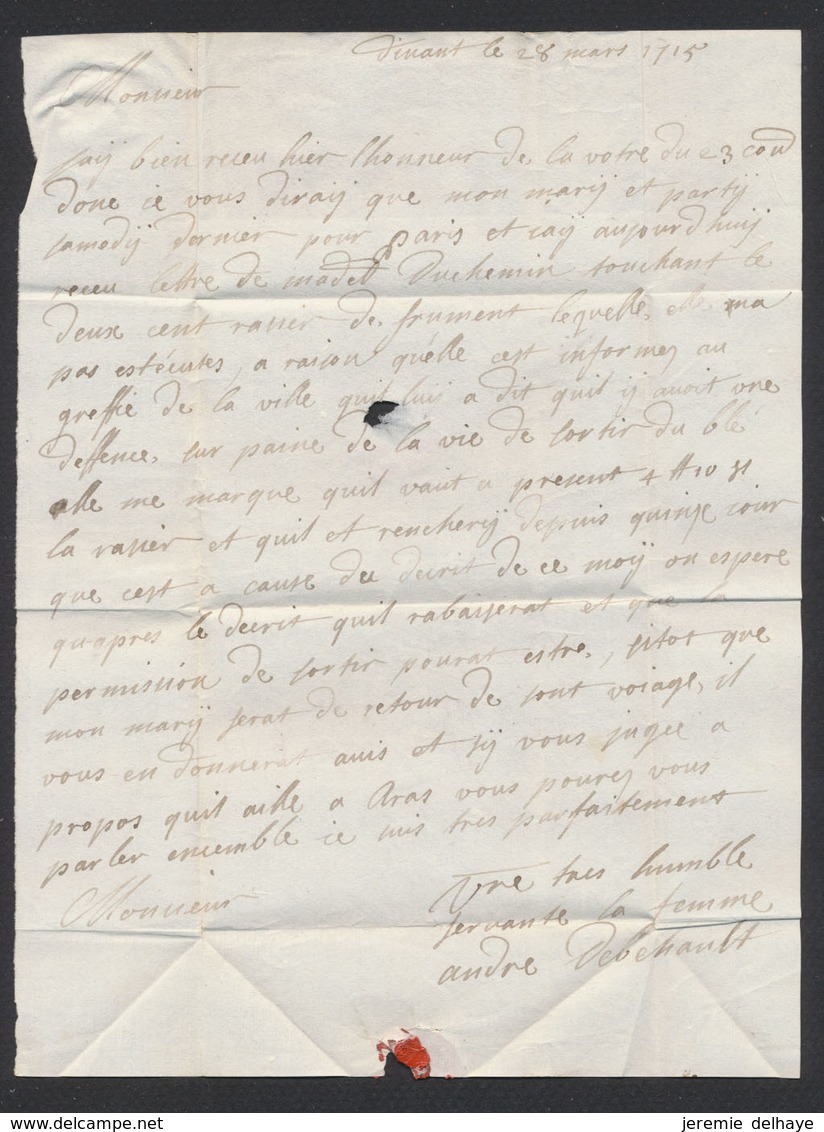 Dinant le 28 mars 1715
Monsieur
jaÿ bien receu hier lhonneur de la votre du 23 cou
donc ie vous diraÿ que mon marÿ et partÿ
samedÿ dernier pour paris et iaÿ aujourdhuÿ
receu lettre de madelle Duchemin touchant le
deux cent rasier de frument lequelle, elle ma
pas estécutes, a raison quélle cest informez au
greffie de la ville quil luis a dit quil ÿ avoit une
deffence, sur paine de la vie de sortir du blé
elle me marque quil vaut a present 4 ₶ 10
la rasier et quil et rencherÿ depuis quinze iour
que cest a cause du decrit de ce moÿ on espere
quapres le decrit quil rabaisserat et que la
permission de sortir pourat estre, sitot que
mon marÿ serat de retour de sont voiage, il
vous en donnerat auis et sÿ vous jugee a
propos quil aille a Aras vous pourez vous
parler ensemble ie suis tres parfaitement
Monsieur
Vre tres humble
servante la femme
andre Debehault
jeremie delhaye